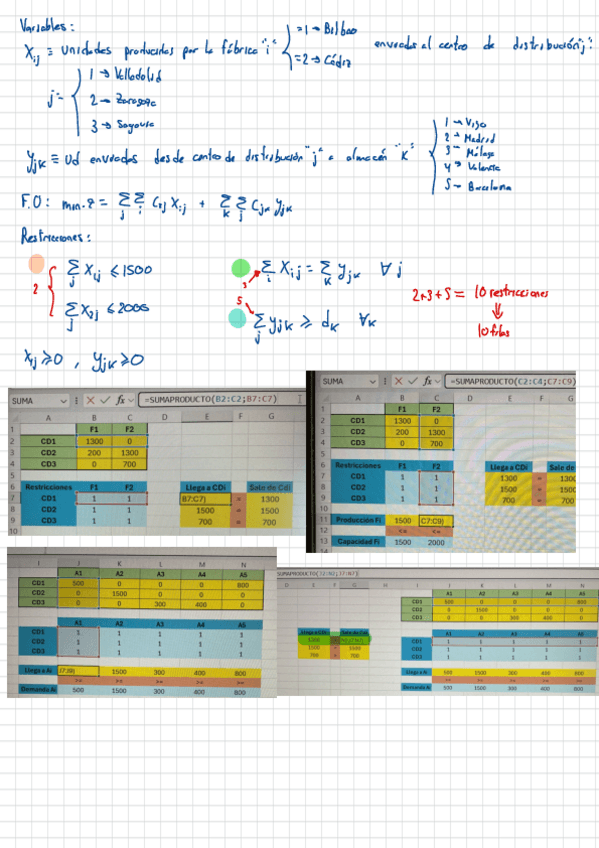 Variables:
Xij ≡ Unidades producidas por la fábrica "i" { =1 → Bilbao
=2 → Cádiz
enviadas al centro de distribución "j":
j = { 1 → Valladolid
2 → Zaragoza
3 → Segovia
yjk ≡ Ud enviadas desde centro de distribución "j" a almacén "k"
1 → Vigo
2 → Madrid
3 → Málaga
4 → Valencia
5 → Barcelona
F.O: min. z = Σj Σi Cij Xij + Σk Σj Cjk yjk
Restricciones:
2 { Σj X1j ≤ 1500
Σj X2j ≤ 2000
3 Σi Xij = Σk yjk ∀j
5 Σj yjk ≥ dk ∀k
2+3+5 = 10 restricciones
⇓
10 filas
Xij ≥ 0 , yjk ≥ 0
SUMA =SUMAPRODUCTO(B2:C2;B7:C7)
A B C D E F G
1 F1 F2
2 CD1 1300 0
3 CD2 200 1300
4 CD3 0 700
5
6 Restricciones F1 F2 Llega a CDi Sale de Cdi
7 CD1 1 1 B7:C7) = 1300
8 CD2 1 1 1500 = 1500
9 CD3 1 1 700 = 700
10
SUMA =SUMAPRODUCTO(C2:C4;C7:C9)
A B C D E F G
1 F1 F2
2 CD1 1300 0
3 CD2 200 1300
4 CD3 0 700
5
6 Restricciones F1 F2 Llega a CDi Sale de
7 CD1 1 1 1300 =
8 CD2 1 1 1500 =
9 CD3 1 1 700 =
10
11 Producción Fi 1500 C7:C9)
12 <= <=
13 Capacidad Fi 1500 2000
I J K L M N
A1 A2 A3 A4 A5
CD1 500 0 0 0 800
CD2 0 1500 0 0 0
CD3 0 0 300 400 0
A1 A2 A3 A4 A5
CD1 1 1 1 1 1
CD2 1 1 1 1 1
CD3 1 1 1 1 1
Llega a Ai J7:J9) 1500 300 400 800
>= >= >= >= >=
Demanda Ai 500 1500 300 400 800
D E F G H I J K L M N
A1 A2 A3 A4 A5
CD1 500 0 0 0 800
CD2 0 1500 0 0 0
CD3 0 0 300 400 0
Llega a CDi Sale de Cdi A1 A2 A3 A4 A5
1300 = CD1 1 1 1 1 1
1500 = 1500 CD2 1 1 1 1 1
700 = 700 CD3 1 1 1 1 1
Llega a Ai 500 1500 300 400 800
>= >= >= >= >=
Demanda Ai 500 1500 300 400 800